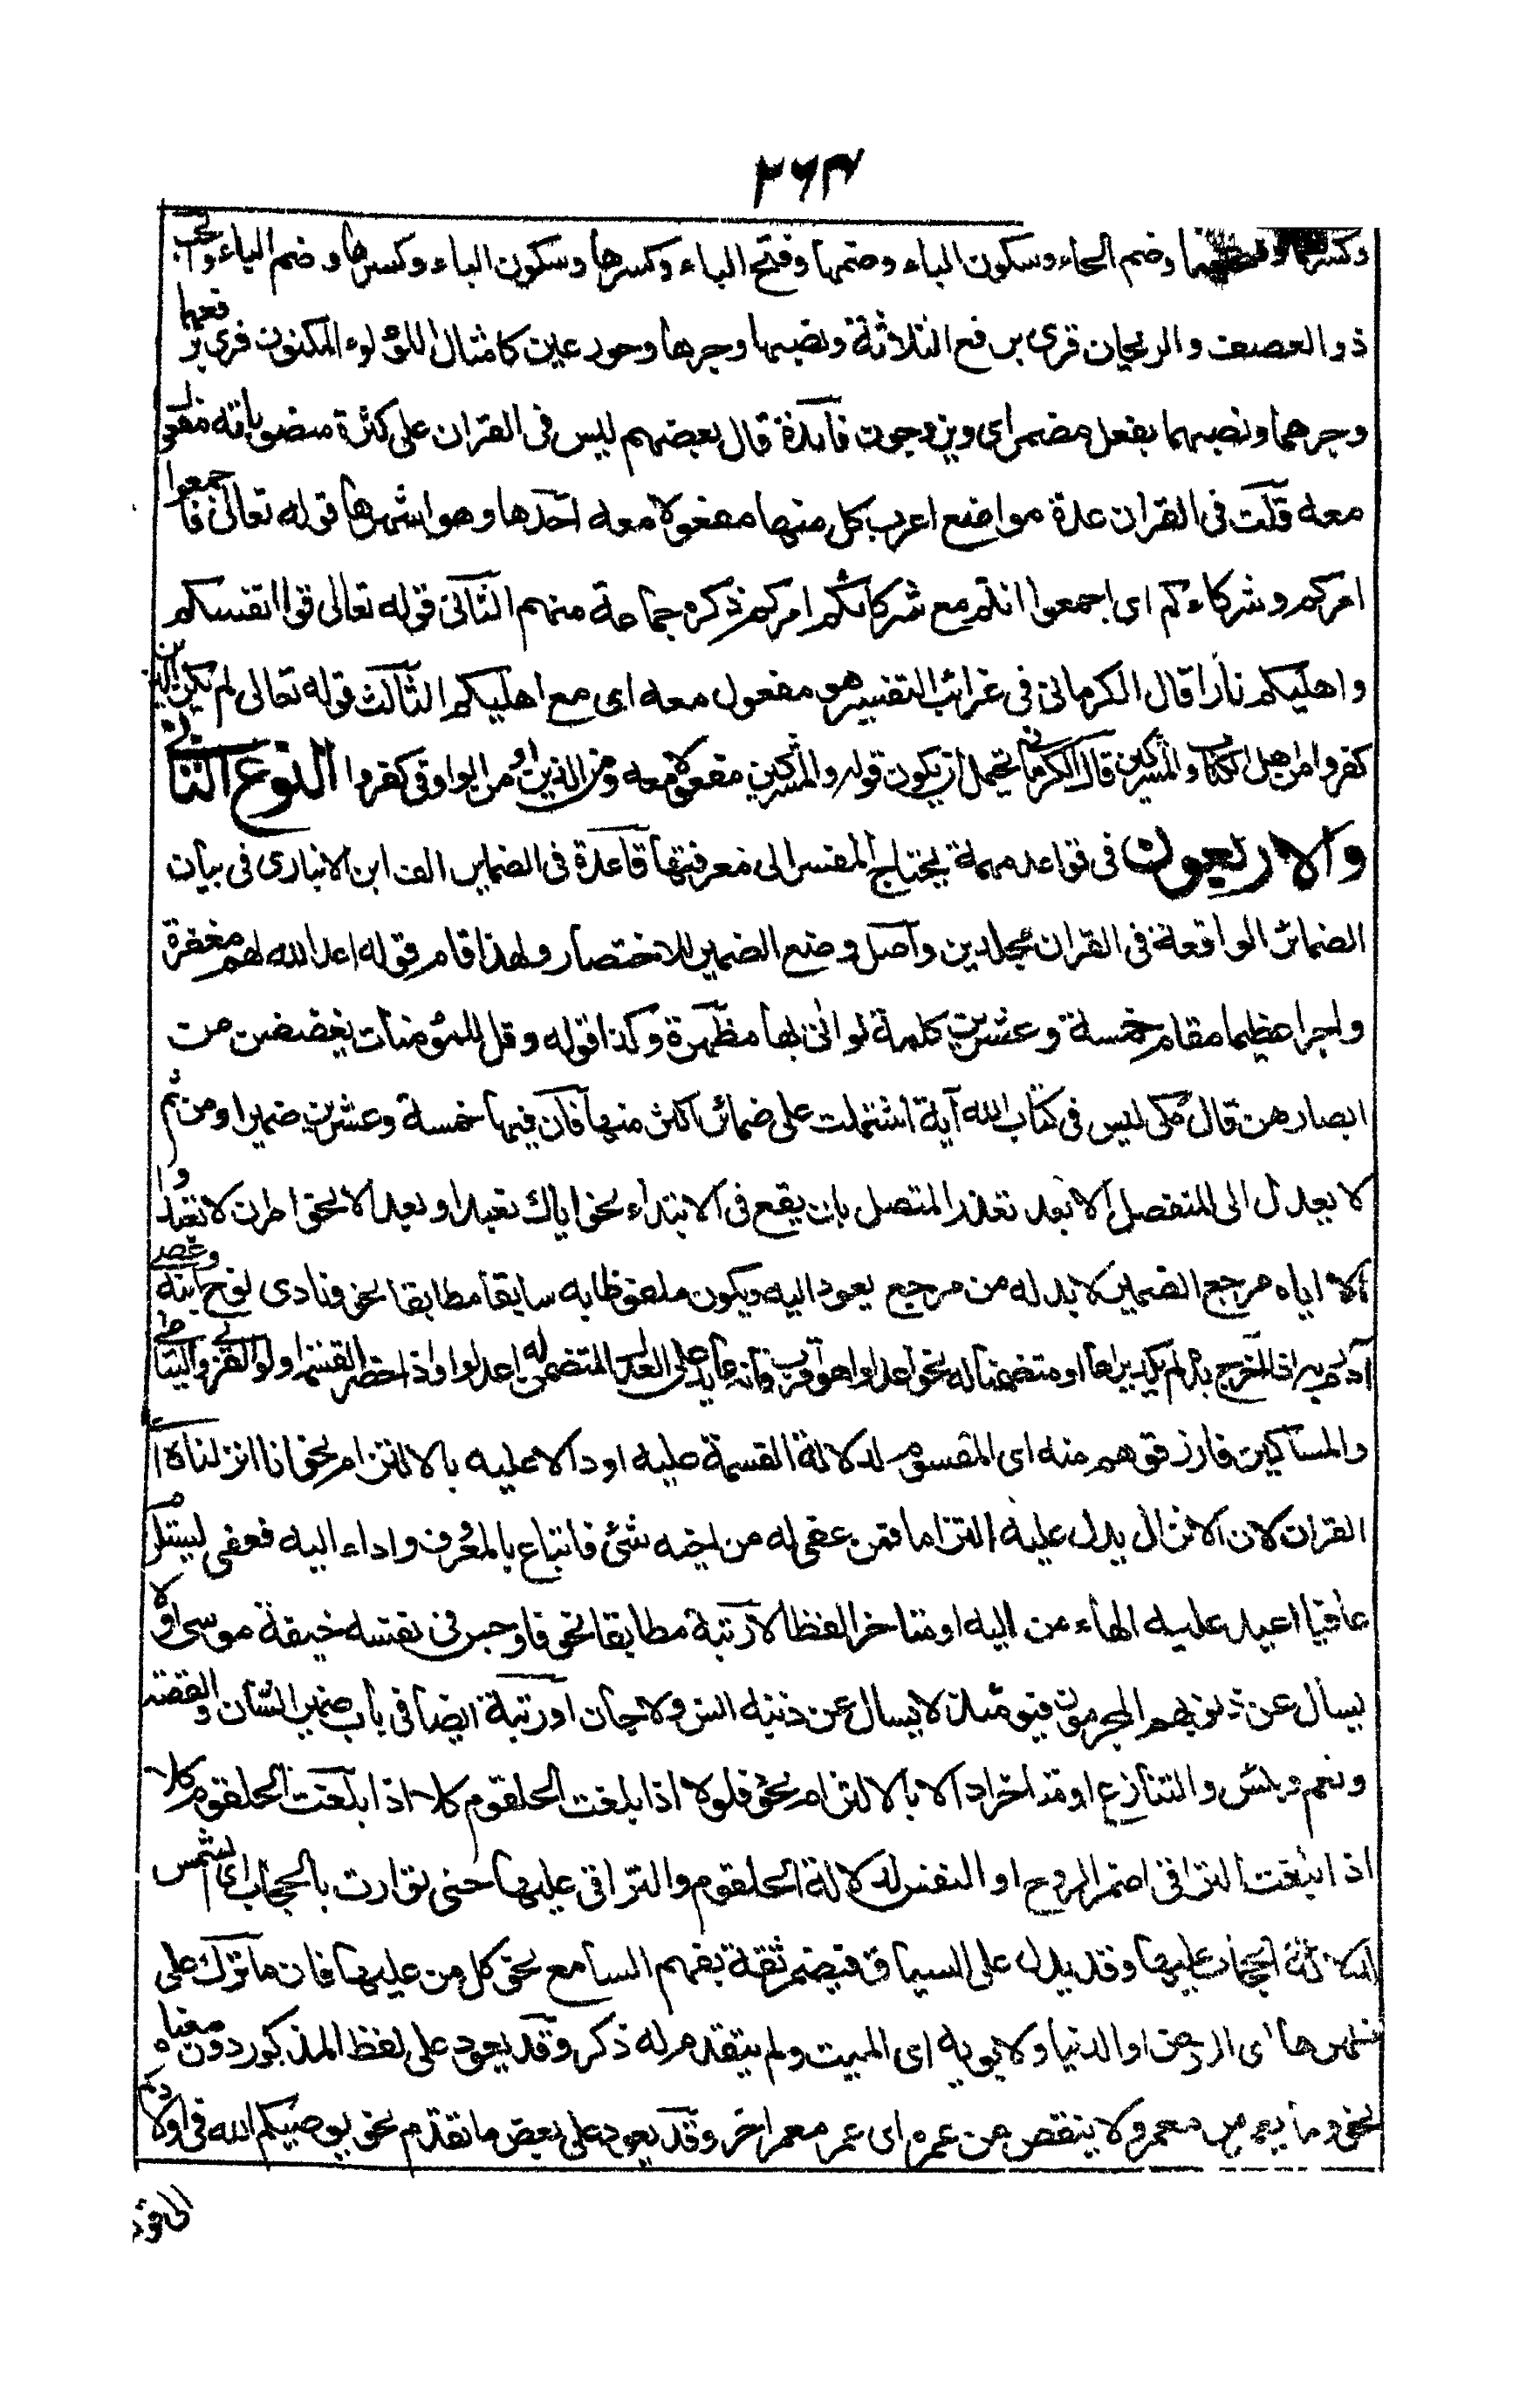 ٢٦٣
وكسرها وفتحهما وضم الحاء وسكون الباء وضمها وفتح الباء وكسرها وسكون الباء وكسرها وضم الباء والحب
ذو العصف والريحان قرئ برفع الثلاثة ونصبها وجرها وحور عين كامثال اللؤلوء المكنون قرئ برفعهما
وجرهما ونصبهما بفعل مضمر اى ويزوجون فائدة قال بعضهم ليس فى القران على كثرة منصوباته مفعول
معه قلت فى القران عدة مواضع اعرب كل منها مفعولا معه احدها وهو اشهرها قوله تعالى فاجمعوا
امركم وشركاءكم اى اجمعوا انتم مع شركائكم امركم ذكره جماعة منهم الثانى قوله تعالى قوا انفسكم
واهليكم نارا قال الكرمانى فى غرائب التفسير هو مفعول معه اى مع اهليكم الثالث قوله تعالى لم يكن الذين
كفروا من اهل الكتاب والمشركين قال الكرمانى يحتمل ان يكون قوله والمشركين مفعولا معه من الذين او من الواو فى كفروا النوع الثانى
والاربعون فى قواعد مهمة يحتاج المفسر الى معرفتها قاعدة فى الضماير الف ابن الانبارى فى بيان
الضمائر الواقعة فى القران مجلدين واصل وضع الضمير للاختصار ولهذا قام قوله اعد الله لهم مغفرة
واجرا عظيما مقام خمسة وعشرين كلمة لو اتى بها مظهرة وكذا قوله وقل للمؤمنات يغضضن من
ابصارهن قال مكى ليس فى كتاب الله آية اشتملت على ضمائر اكثر منها فان فيها خمسة وعشرين ضميرا ومن ثم
لا يعدل الى المنفصل الا بعد تعذر المتصل بان يقع فى الابتداء نحو اياك نعبد او بعد الا نحو امر ان لا تعبدوا
الا اياه مرجع الضمير لا بد له من مرجع يعود اليه ويكون ملفوظا به سابقا مطابقا نحو ونادى نوح ابنه وعصى
آدم ربه اذا اخرج يده لم يكد يراها او متضمنا له نحو اعدلوا هو اقرب فانه عايد على العدل المتضمن له اعدلوا واذا حضر القسمة اولوا القربى واليتامى
والمساكين فارزقوهم منه اى المقسوم لدلالة القسمة عليه او دالا عليه بالالتزام نحو انا انزلناه ا
القران لان الانزال يدل عليه التزاما فمن عفى له من اخيه شئ فاتباع بالمعروف واداء اليه فعفى يستلزم
عافيا اعيد عليه الهاء من اليه او متاخرا لفظا لا رتبة مطابقا نحو فاوجس فى نفسه خيفة موسى ولا
يسأل عن ذنوبهم المجرمون فيومئذ لا يسال عن ذنبه انس ولا جان او رتبة ايضا فى باب ضمير الشان والقصة
ونعم وبئس والتنازع او متاخرا دالا بالالتزام نحو فلولا اذا بلغت الحلقوم كلا اذا بلغت الحلقوم كلا
اذا بلغت التراقى اضمر الروح او النفس لدلالة الحلقوم والتراقى عليها حتى توارت بالحجاب اى الشمس
لدلالة الحجاب عليها وقد يدل على السياق فيضمر ثقة بفهم السامع نحو كل من عليها فان ما ترك على
ظهرها اى الارض او الدنيا ولابويه اى الميت ولم يتقدم له ذكر وقد يعود على لفظ المذكور دون معناه
نحو وما يعمر من معمر ولا ينقص من عمره اى عمر معمر اخر وقد يعود على بعض ما تقدم نحو يوصيكم الله فى اولادكم